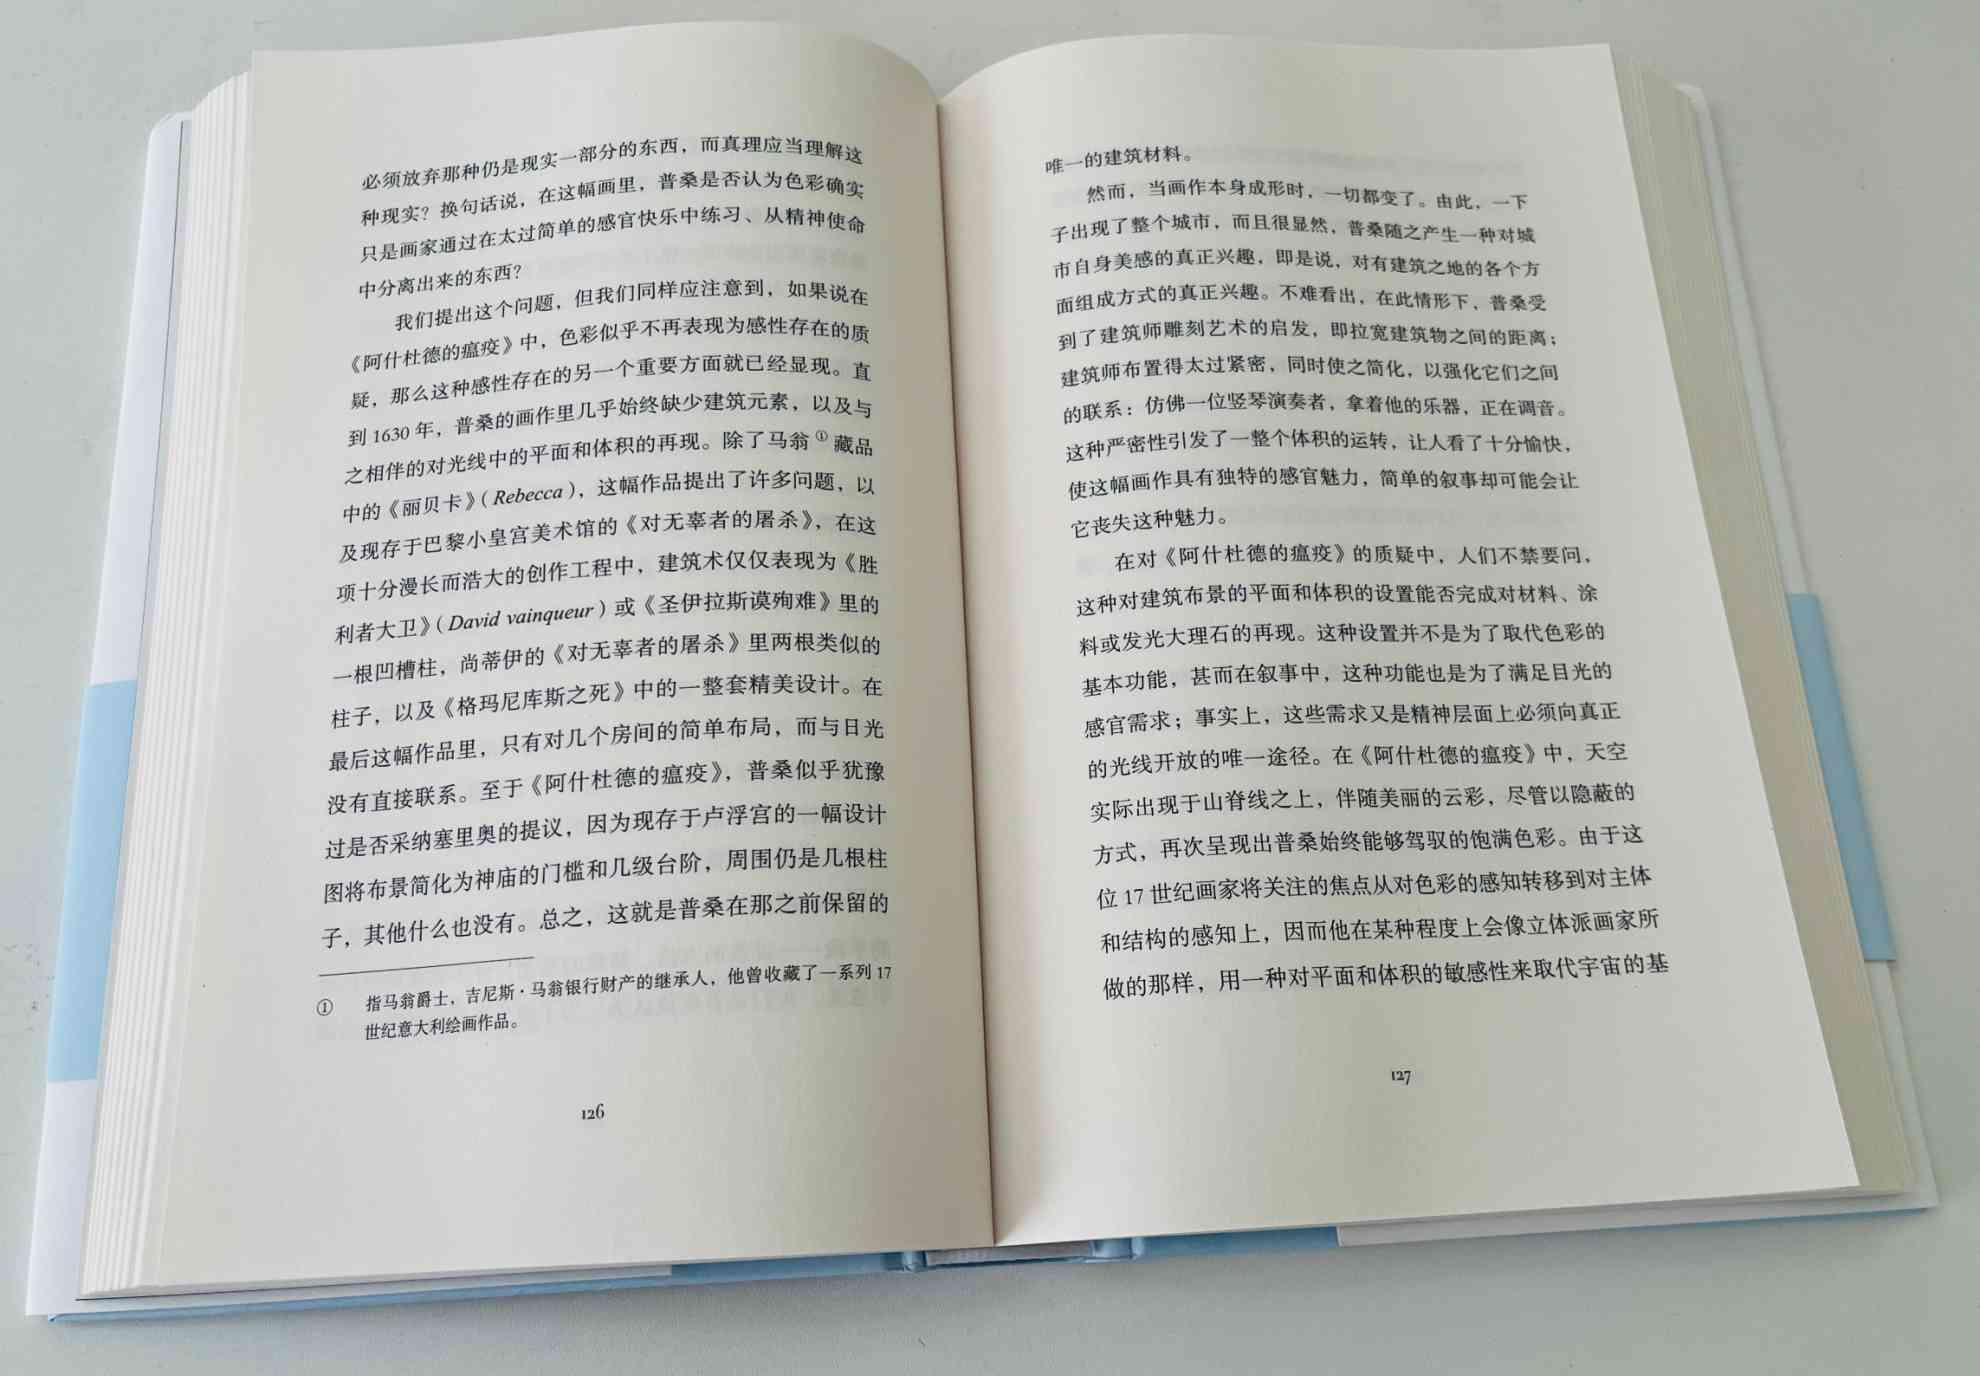 必须放弃那种仍是现实一部分的东西，而真理应当理解这
种现实？换句话说，在这幅画里，普桑是否认为色彩确实
只是画家通过在太过简单的感官快乐中练习、从精神使命
中分离出来的东西？
我们提出这个问题，但我们同样应注意到，如果说在
《阿什杜德的瘟疫》中，色彩似乎不再表现为感性存在的质
疑，那么这种感性存在的另一个重要方面就已经显现。直
到 1630 年，普桑的画作里几乎始终缺少建筑元素，以及与
之相伴的对光线中的平面和体积的再现。除了马翁①藏品
中的《丽贝卡》（Rebecca），这幅作品提出了许多问题，以
及现存于巴黎小皇宫美术馆的《对无辜者的屠杀》，在这
项十分漫长而浩大的创作工程中，建筑术仅仅表现为《胜
利者大卫》（David vainqueur）或《圣伊拉斯谟殉难》里的
一根凹槽柱，尚蒂伊的《对无辜者的屠杀》里两根类似的
柱子，以及《格玛尼库斯之死》中的一整套精美设计。在
最后这幅作品里，只有对几个房间的简单布局，而与日光
没有直接联系。至于《阿什杜德的瘟疫》，普桑似乎犹豫
过是否采纳塞里奥的提议，因为现存于卢浮宫的一幅设计
图将布景简化为神庙的门槛和几级台阶，周围仍是几根柱
子，其他什么也没有。总之，这就是普桑在那之前保留的
① 指马翁爵士，吉尼斯·马翁银行财产的继承人，他曾收藏了一系列 17
世纪意大利绘画作品。
126
唯一的建筑材料。
然而，当画作本身成形时，一切都变了。由此，一下
子出现了整个城市，而且很显然，普桑随之产生一种对城
市自身美感的真正兴趣，即是说，对有建筑之地的各个方
面组成方式的真正兴趣。不难看出，在此情形下，普桑受
到了建筑师雕刻艺术的启发，即拉宽建筑物之间的距离；
建筑师布置得太过紧密，同时使之简化，以强化它们之间
的联系：仿佛一位竖琴演奏者，拿着他的乐器，正在调音。
这种严密性引发了一整个体积的运转，让人看了十分愉快，
使这幅画作具有独特的感官魅力，简单的叙事却可能会让
它丧失这种魅力。
在对《阿什杜德的瘟疫》的质疑中，人们不禁要问，
这种对建筑布景的平面和体积的设置能否完成对材料、涂
料或发光大理石的再现。这种设置并不是为了取代色彩的
基本功能，甚而在叙事中，这种功能也是为了满足目光的
感官需求；事实上，这些需求又是精神层面上必须向真正
的光线开放的唯一途径。在《阿什杜德的瘟疫》中，天空
实际出现于山脊线之上，伴随美丽的云彩，尽管以隐蔽的
方式，再次呈现出普桑始终能够驾驭的饱满色彩。由于这
位 17 世纪画家将关注的焦点从对色彩的感知转移到对主体
和结构的感知上，因而他在某种程度上会像立体派画家所
做的那样，用一种对平面和体积的敏感性来取代宇宙的基
127